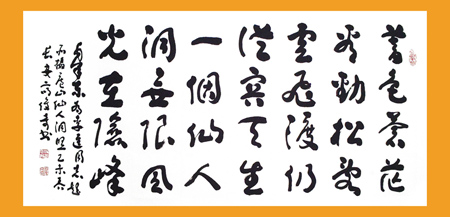 暮色蒼茫
看勁松亂
雲飛渡仍
從容天生
一個仙人
洞無限風
光在險峰
毛澤東為李進同志題
所攝廬山仙人洞照乙未春
長安